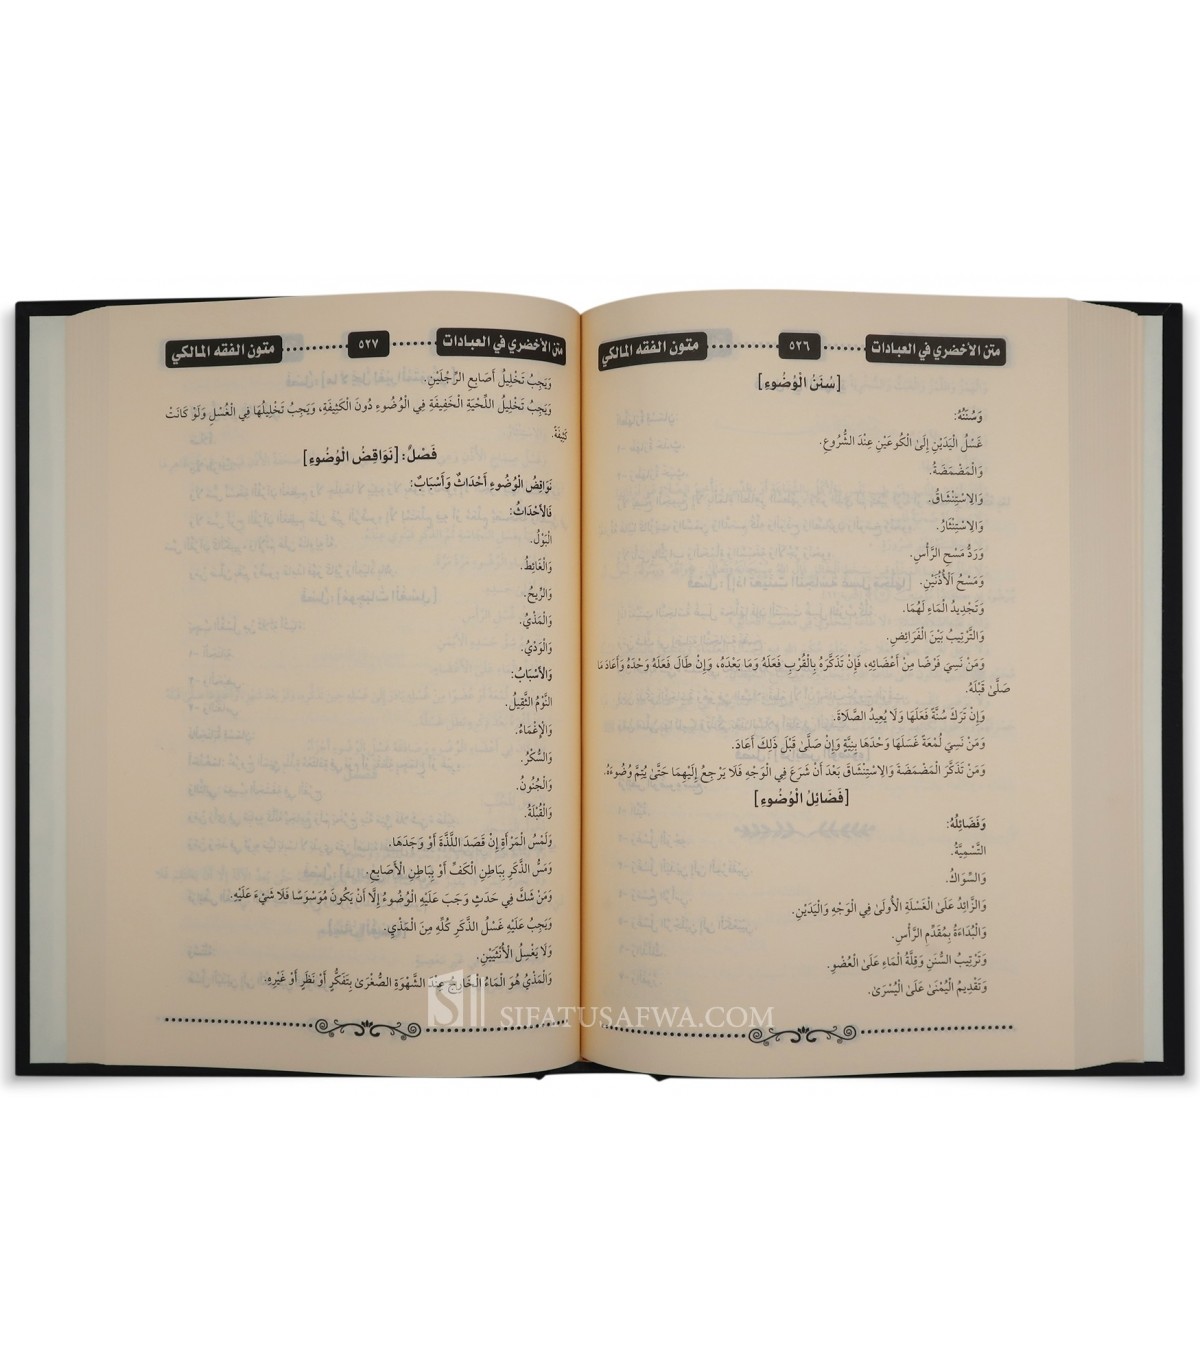 متن الأخضري في العبادات ٥٢٦ متون الفقه المالكي
[سُنَنُ الْوُضُوءِ]
وَسُنَنُهُ:
غَسْلُ الْيَدَيْنِ إِلَى الْكُوعَيْنِ عِنْدَ الشُّرُوعِ.
وَالْمَضْمَضَةُ.
وَالِاسْتِنْشَاقُ.
وَالِاسْتِنْثَارُ.
وَرَدُّ مَسْحِ الرَّأْسِ.
وَمَسْحُ الْأُذُنَيْنِ.
وَتَجْدِيدُ الْمَاءِ لَهُمَا.
وَالتَّرْتِيبُ بَيْنَ الْفَرَائِضِ.
وَمَنْ نَسِيَ فَرْضًا مِنْ أَعْضَائِهِ، فَإِنْ تَذَكَّرَهُ بِالْقُرْبِ فَعَلَهُ وَمَا بَعْدَهُ، وَإِنْ طَالَ فَعَلَهُ وَحْدَهُ وَأَعَادَ مَا
صَلَّى قَبْلَهُ.
وَإِنْ تَرَكَ سُنَّةً فَعَلَهَا وَلَا يُعِيدُ الصَّلَاةَ.
وَمَنْ نَسِيَ لُمْعَةً غَسَلَهَا وَحْدَهَا بِنِيَّةٍ وَإِنْ صَلَّى قَبْلَ ذَلِكَ أَعَادَ.
وَمَنْ تَذَكَّرَ الْمَضْمَضَةَ وَالِاسْتِنْشَاقَ بَعْدَ أَنْ شَرَعَ فِي الْوَجْهِ فَلَا يَرْجِعُ إِلَيْهِمَا حَتَّى يُتِمَّ وُضُوءَهُ.
[فَضَائِلُ الْوُضُوءِ]
وَفَضَائِلُهُ:
التَّسْمِيَّةُ.
وَالسِّوَاكُ.
وَالزَّائِدُ عَلَى الْغَسْلَةِ الْأُولَى فِي الْوَجْهِ وَالْيَدَيْنِ.
وَالْبُدَاءَةُ بِمُقَدَّمِ الرَّأْسِ.
وَتَرْتِيبُ السُّنَنِ وَقِلَّةُ الْمَاءِ عَلَى الْعُضْوِ.
وَتَقْدِيمُ الْيُمْنَى عَلَى الْيُسْرَى.
متن الأخضري في العبادات ٥٢٧ متون الفقه المالكي
وَيَجِبُ تَخْلِيلُ أَصَابِعِ الرِّجْلَيْنِ.
وَيَجِبُ تَخْلِيلُ اللِّحْيَةِ الْخَفِيفَةِ فِي الْوُضُوءِ دُونَ الْكَثِيفَةِ، وَيَجِبُ تَخْلِيلُهَا فِي الْغُسْلِ وَلَوْ كَانَتْ
كَثِيفَةً.
فَصْلٌ: [نَوَاقِضُ الْوُضُوءِ]
نَوَاقِضُ الْوُضُوءِ أَحْدَاثٌ وَأَسْبَابٌ:
فَالْأَحْدَاثُ:
الْبَوْلُ.
وَالْغَائِطُ.
وَالرِّيحُ.
وَالْمَذْيُ.
وَالْوَدْيُ.
وَالْأَسْبَابُ:
النَّوْمُ الثَّقِيلُ.
وَالْإِغْمَاءُ.
وَالسُّكْرُ.
وَالْجُنُونُ.
وَالْقُبْلَةُ.
وَلَمْسُ الْمَرْأَةِ إِنْ قَصَدَ اللَّذَّةَ أَوْ وَجَدَهَا.
وَمَسُّ الذَّكَرِ بِبَاطِنِ الْكَفِّ أَوْ بِبَاطِنِ الْأَصَابِعِ.
وَمَنْ شَكَّ فِي حَدَثٍ وَجَبَ عَلَيْهِ الْوُضُوءُ إِلَّا أَنْ يَكُونَ مُوَسْوَسًا فَلَا شَيْءَ عَلَيْهِ.
وَيَجِبُ عَلَيْهِ غَسْلُ الذَّكَرِ كُلِّهِ مِنَ الْمَذْيِ.
وَلَا يَغْسِلُ الْأُنْثَيَيْنِ.
وَالْمَذْيُ هُوَ الْمَاءُ الْخَارِجُ عِنْدَ الشَّهْوَةِ الصُّغْرَى بِتَفَكُّرٍ أَوْ نَظَرٍ أَوْ غَيْرِهِ.
SIFATUSAFWA.COM